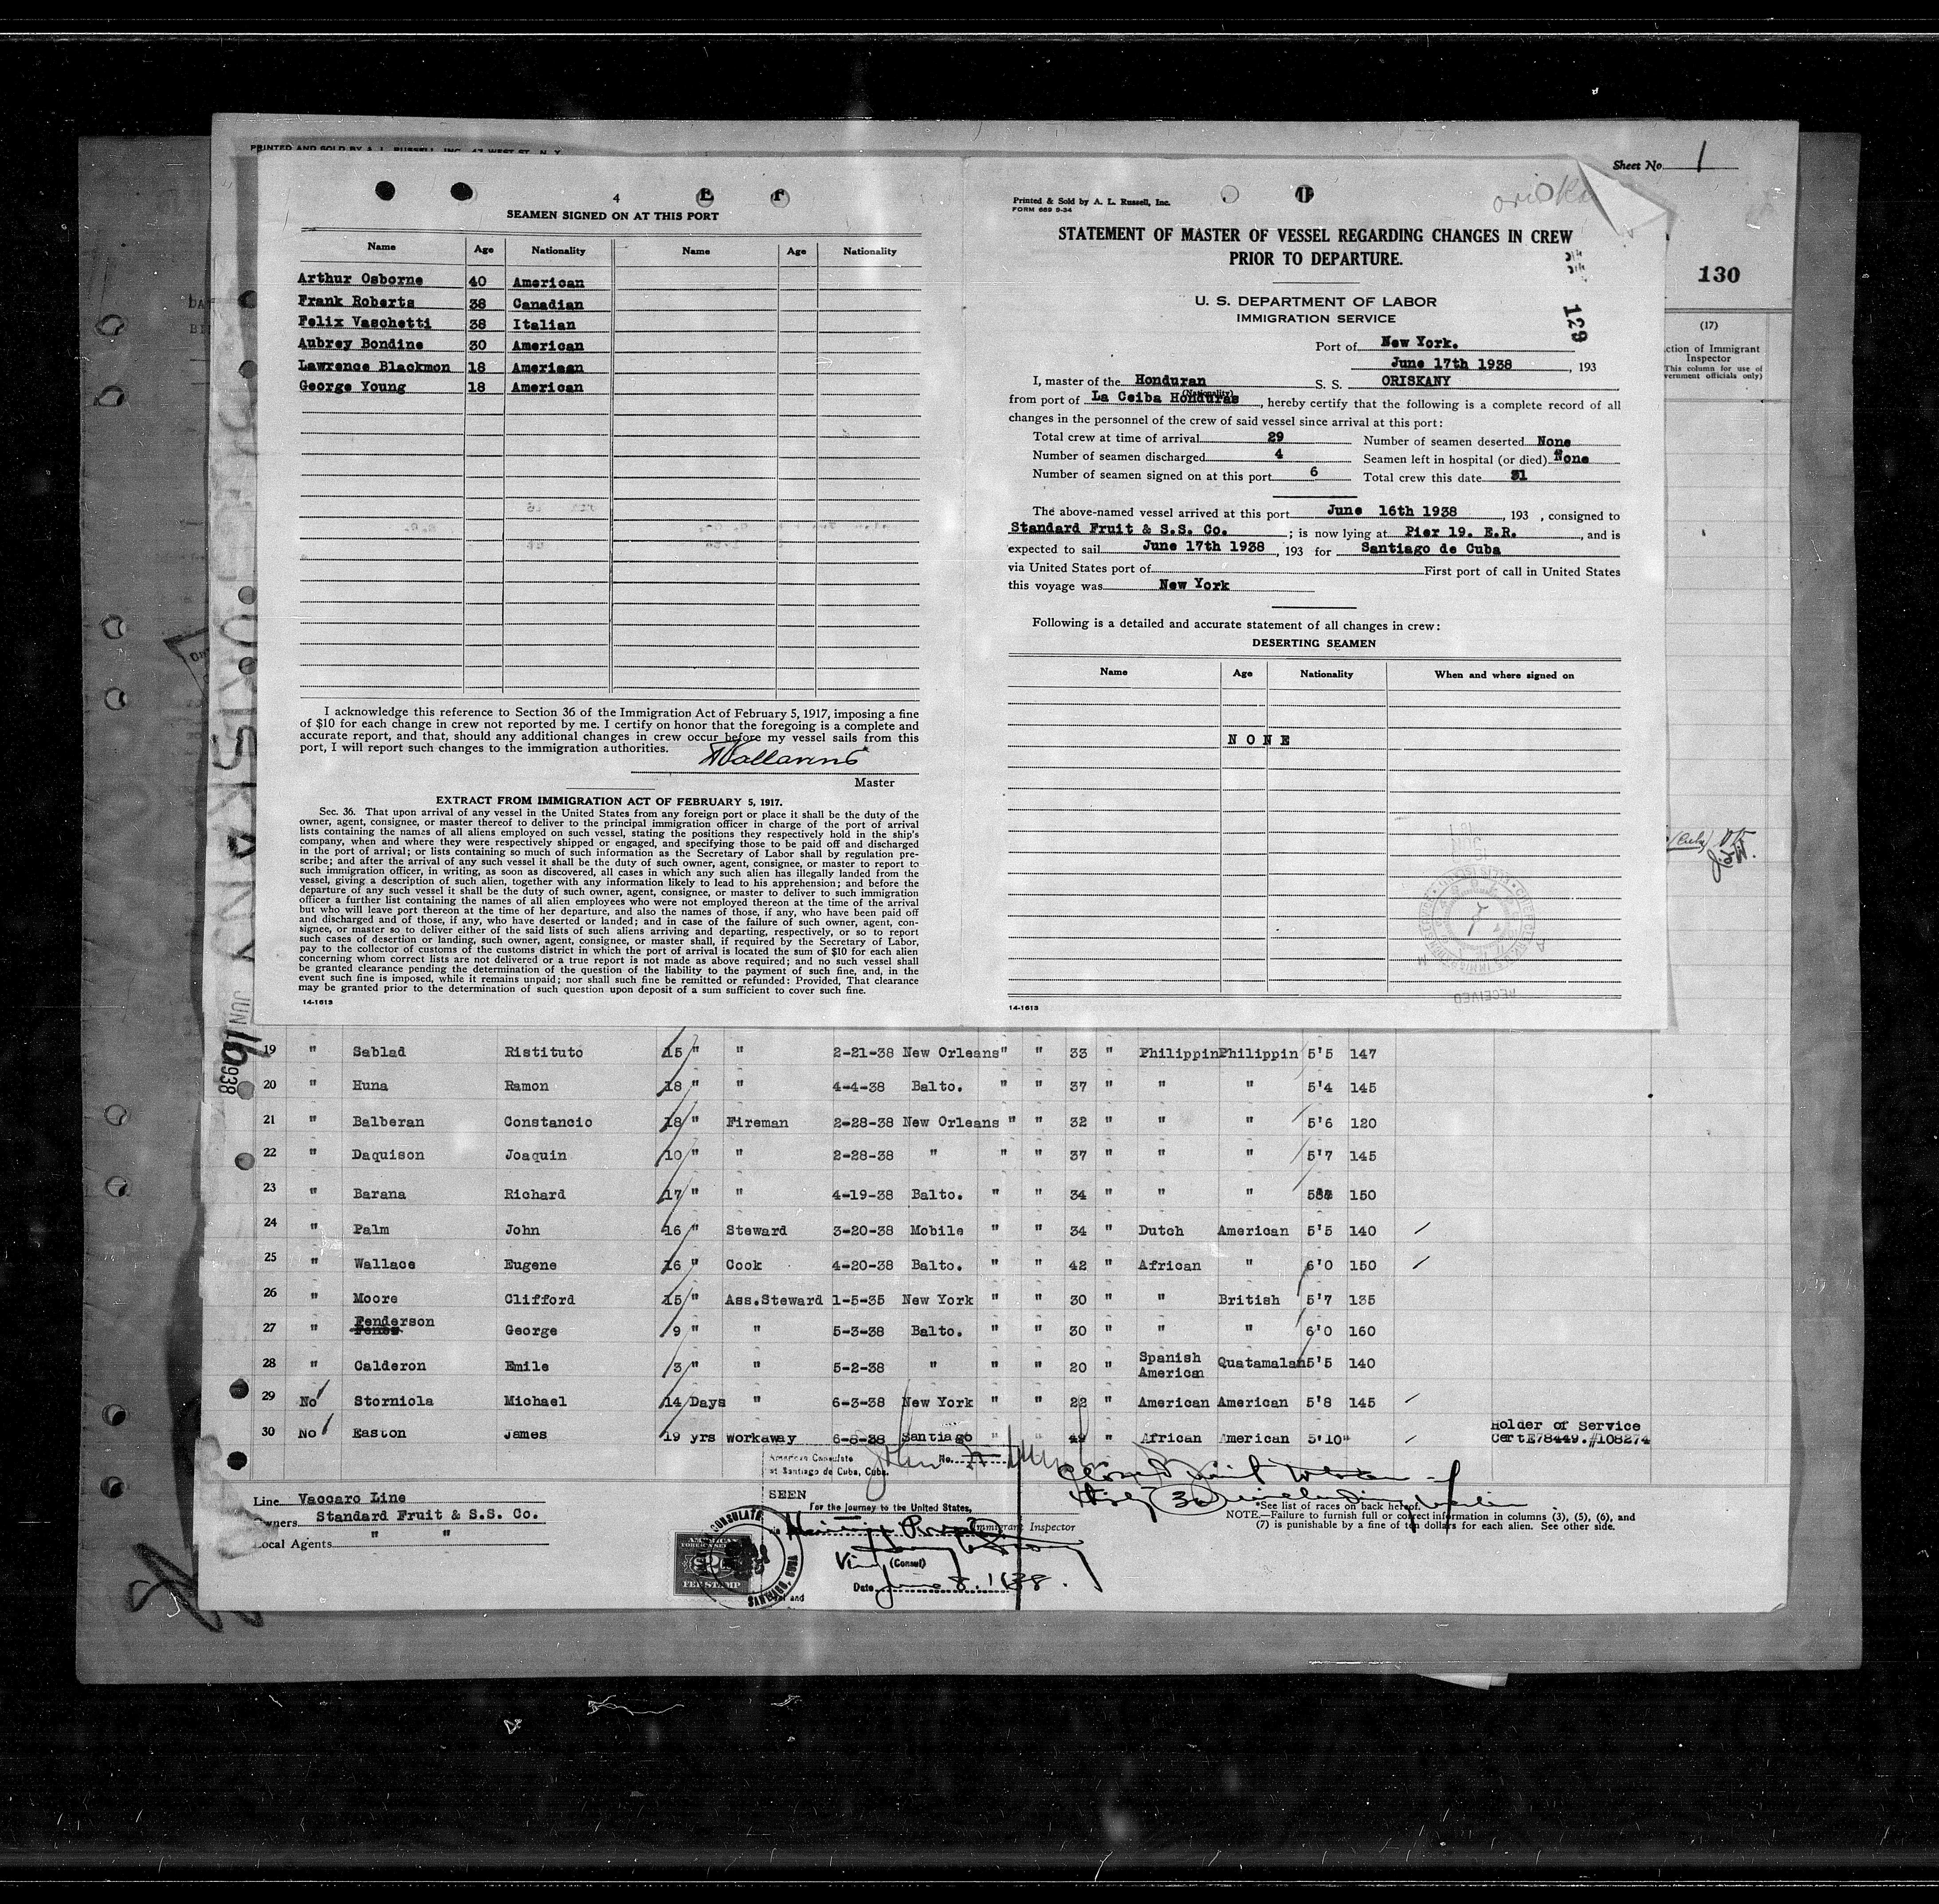 PRINTED AND SOLD BY A. L. RUSSELL, INC. 47 WEST ST. N. Y.
Sheet No. 1
130
(17)
Action of Immigrant
Inspector
(This column for use of
Government officials only)
4
SEAMEN SIGNED ON AT THIS PORT
Name Age Nationality Name Age Nationality
Arthur Osborne 40 American
Frank Roberts 38 Canadian
Felix Vaschetti 38 Italian
Aubrey Bondine 30 American
Lawrence Blackmon 18 American
George Young 18 American
I acknowledge this reference to Section 36 of the Immigration Act of February 5, 1917, imposing a fine
of $10 for each change in crew not reported by me. I certify on honor that the foregoing is a complete and
accurate report, and that, should any additional changes in crew occur before my vessel sails from this
port, I will report such changes to the immigration authorities.
Master
EXTRACT FROM IMMIGRATION ACT OF FEBRUARY 5, 1917.
Sec. 36. That upon arrival of any vessel in the United States from any foreign port or place it shall be the duty of the
owner, agent, consignee, or master thereof to deliver to the principal immigration officer in charge of the port of arrival
lists containing the names of all aliens employed on such vessel, stating the positions they respectively hold in the ship's
company, when and where they were respectively shipped or engaged, and specifying those to be paid off and discharged
in the port of arrival; or lists containing so much of such information as the Secretary of Labor shall by regulation pre-
scribe; and after the arrival of any such vessel it shall be the duty of such owner, agent, consignee, or master to report to
such immigration officer, in writing, as soon as discovered, all cases in which any such alien has illegally landed from the
vessel, giving a description of such alien, together with any information likely to lead to his apprehension; and before the
departure of any such vessel it shall be the duty of such owner, agent, consignee, or master to deliver to such immigration
officer a further list containing the names of all alien employees who were not employed thereon at the time of the arrival
but who will leave port thereon at the time of her departure, and also the names of those, if any, who have been paid off
and discharged and of those, if any, who have deserted or landed; and in case of the failure of such owner, agent, con-
signee, or master so to deliver either of the said lists of such aliens arriving and departing, respectively, or so to report
such cases of desertion or landing, such owner, agent, consignee, or master shall, if required by the Secretary of Labor,
pay to the collector of customs of the customs district in which the port of arrival is located the sum of $10 for each alien
concerning whom correct lists are not delivered or a true report is not made as above required; and no such vessel shall
be granted clearance pending the determination of the question of the liability to the payment of such fine, and, in the
event such fine is imposed, while it remains unpaid; nor shall such fine be remitted or refunded: Provided, That clearance
may be granted prior to the determination of such question upon deposit of a sum sufficient to cover such fine.
14-1613
Printed & Sold by A. L. Russell, Inc.
FORM 689 9-34
oriska
STATEMENT OF MASTER OF VESSEL REGARDING CHANGES IN CREW
PRIOR TO DEPARTURE.
U. S. DEPARTMENT OF LABOR
IMMIGRATION SERVICE
129
Port of New York.
June 17th 1938, 193
I, master of the Honduran S. S. ORISKANY
(Nationality)
from port of La Ceiba Honduras, hereby certify that the following is a complete record of all
changes in the personnel of the crew of said vessel since arrival at this port:
Total crew at time of arrival 29 Number of seamen deserted None
Number of seamen discharged 4 Seamen left in hospital (or died) None
Number of seamen signed on at this port 6 Total crew this date 31
The above-named vessel arrived at this port June 16th 1938, 193 , consigned to
Standard Fruit & S.S. Co. ; is now lying at Pier 19. E.R. , and is
expected to sail June 17th 1938, 193 for Santiago de Cuba
via United States port of First port of call in United States
this voyage was New York
Following is a detailed and accurate statement of all changes in crew:
DESERTING SEAMEN
Name Age Nationality When and where signed on
NONE
RECEIVED
14-1613
ORISKANY JUN 16 1938
19 " Sablad Ristituto 15 " " 2-21-38 New Orleans " " 33 " Philippin Philippin 5'5 147
20 " Huna Ramon 18 " " 4-4-38 Balto. " " 37 " " " 5'4 145
21 " Balberan Constancio 18 " Fireman 2-28-38 New Orleans " " 32 " " " 5'6 120
22 " Daquison Joaquin 10 " " 2-28-38 " " " 37 " " " 5'7 145
23 " Barana Richard 17 " " 4-19-38 Balto. " " 34 " " " 150
24 " Palm John 16 " Steward 3-20-38 Mobile " " 34 " Dutch American 5'5 140
25 " Wallace Eugene 16 " Cook 4-20-38 Balto. " " 42 " African " 6'0 150
26 " Moore Clifford 15 " Ass.Steward 1-5-35 New York " " 30 " " British 5'7 135
27 " Fenderson George 9 " " 5-3-38 Balto. " " 30 " " " 6'0 160
28 " Calderon Emile 3 " " 5-2-38 " " " 20 " Spanish American Quatamalan 5'5 140
29 No Storniola Michael 14 Days " 6-3-38 New York " " 22 " American American 5'8 145
30 No Easton James 19 yrs workaway 6-8-38 Santiago " " " African American 5'10"
Holder of Service
CertE78449.#108274
Line Vaccaro Line
Owners Standard Fruit & S.S. Co.
Local Agents " "
American Consulate
at Santiago de Cuba, Cuba.
No.
SEEN
For the journey to the United States,
Immigrant Inspector
(Consul)
Date June 8, 1938.
FEE STAMP
*See list of races on back hereof.
NOTE.—Failure to furnish full or correct information in columns (3), (5), (6), and
(7) is punishable by a fine of ten dollars for each alien. See other side.